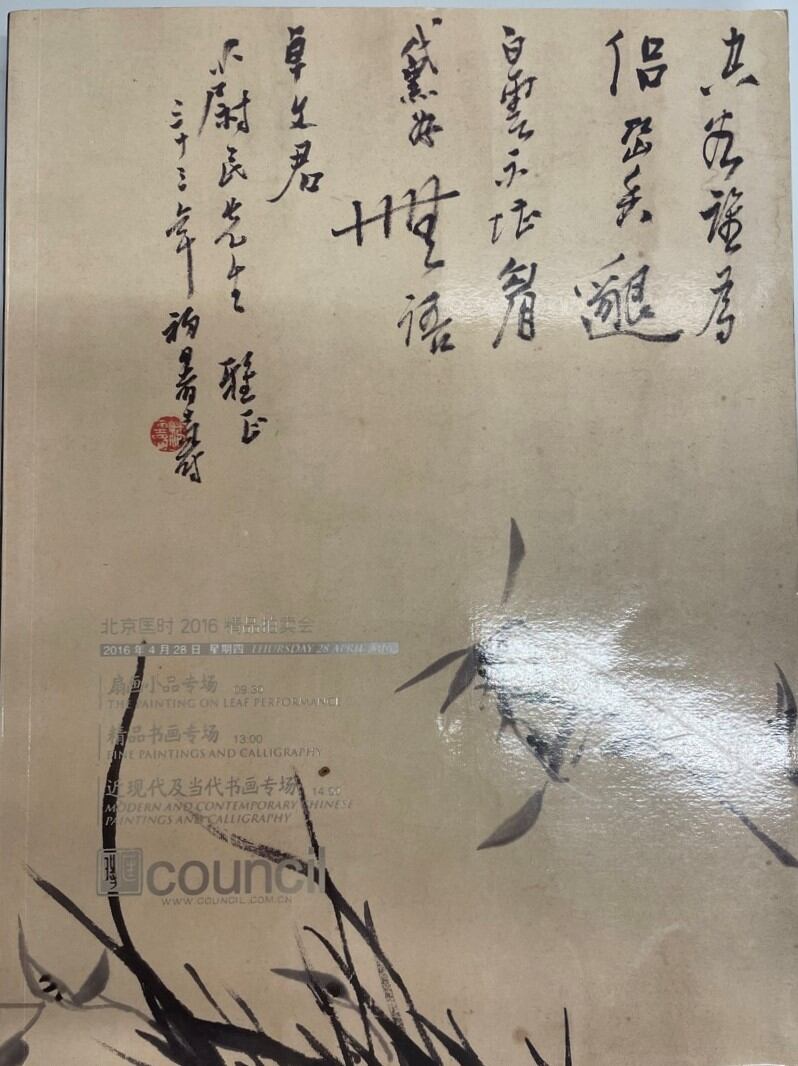 誰為
侣
白雲不堪
黛無語
卓文君
尉民先生 雅正
三十三年
北京匡时 2016 精品拍卖会
2016 年 4 月 28 日 星期四 THURSDAY 28 APRIL 2016
扇画小品专场 09:30
THE PAINTING ON LEAF PERFORMANCE
精品书画专场 13:00
FINE PAINTINGS AND CALLIGRAPHY
近现代及当代书画专场 14:00
MODERN AND CONTEMPORARY CHINESE
PAINTINGS AND CALLIGRAPHY
council
WWW.COUNCIL.COM.CN